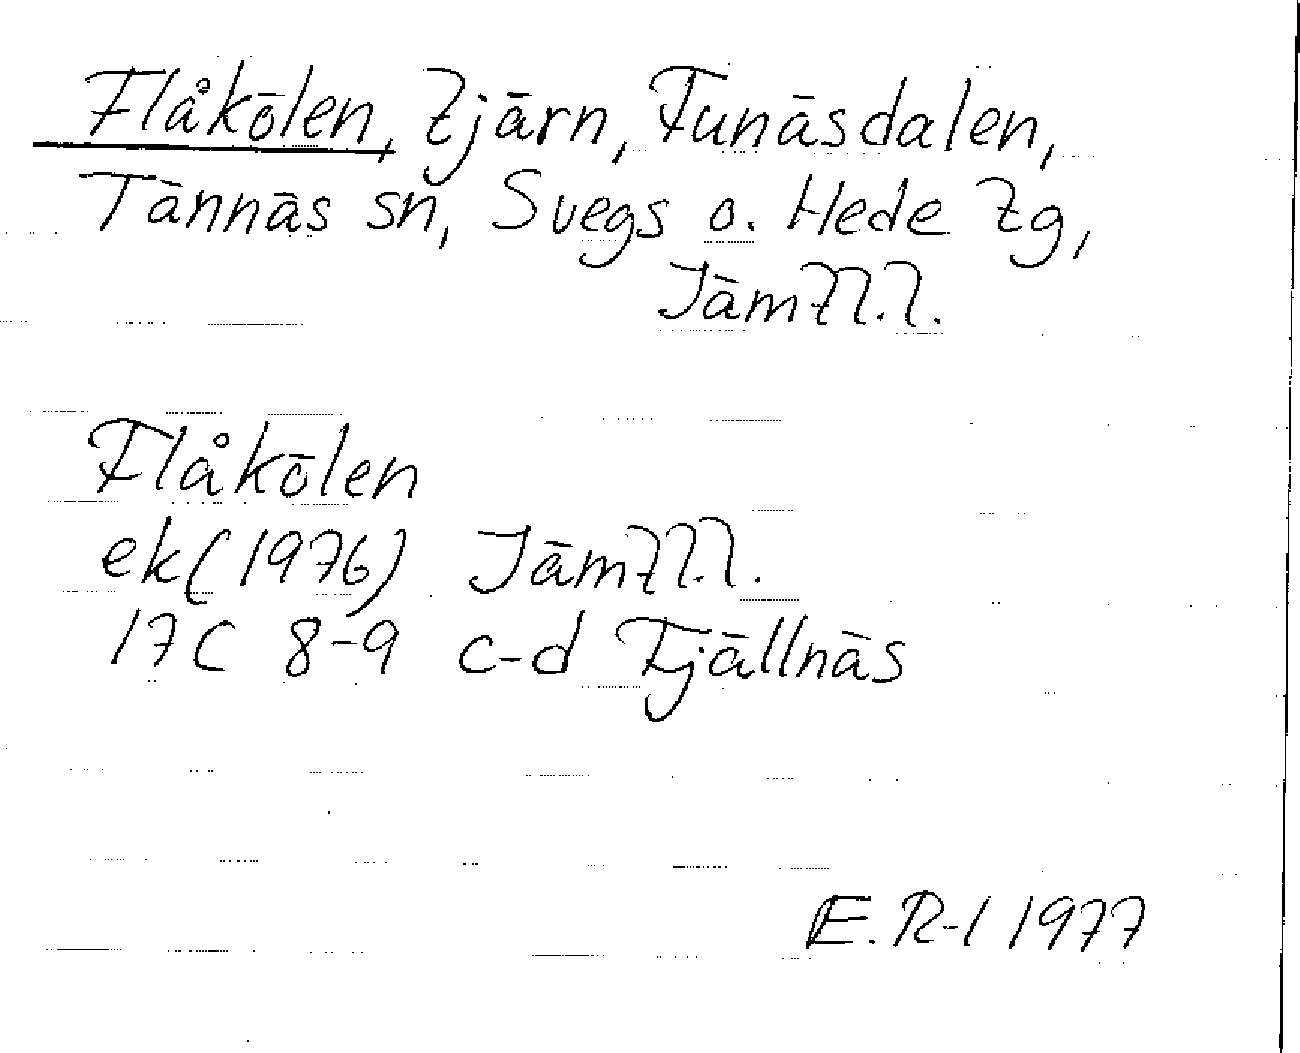 Flåkölen, tjärn, Funäsdalen,
Tännäs sn, Svegs o. Hede tg,
Jämtl. l.
Flåkölen
ek (1976) Jämtl. l.
17C 8-9 c-d Fjällnäs
E. R-l 1977